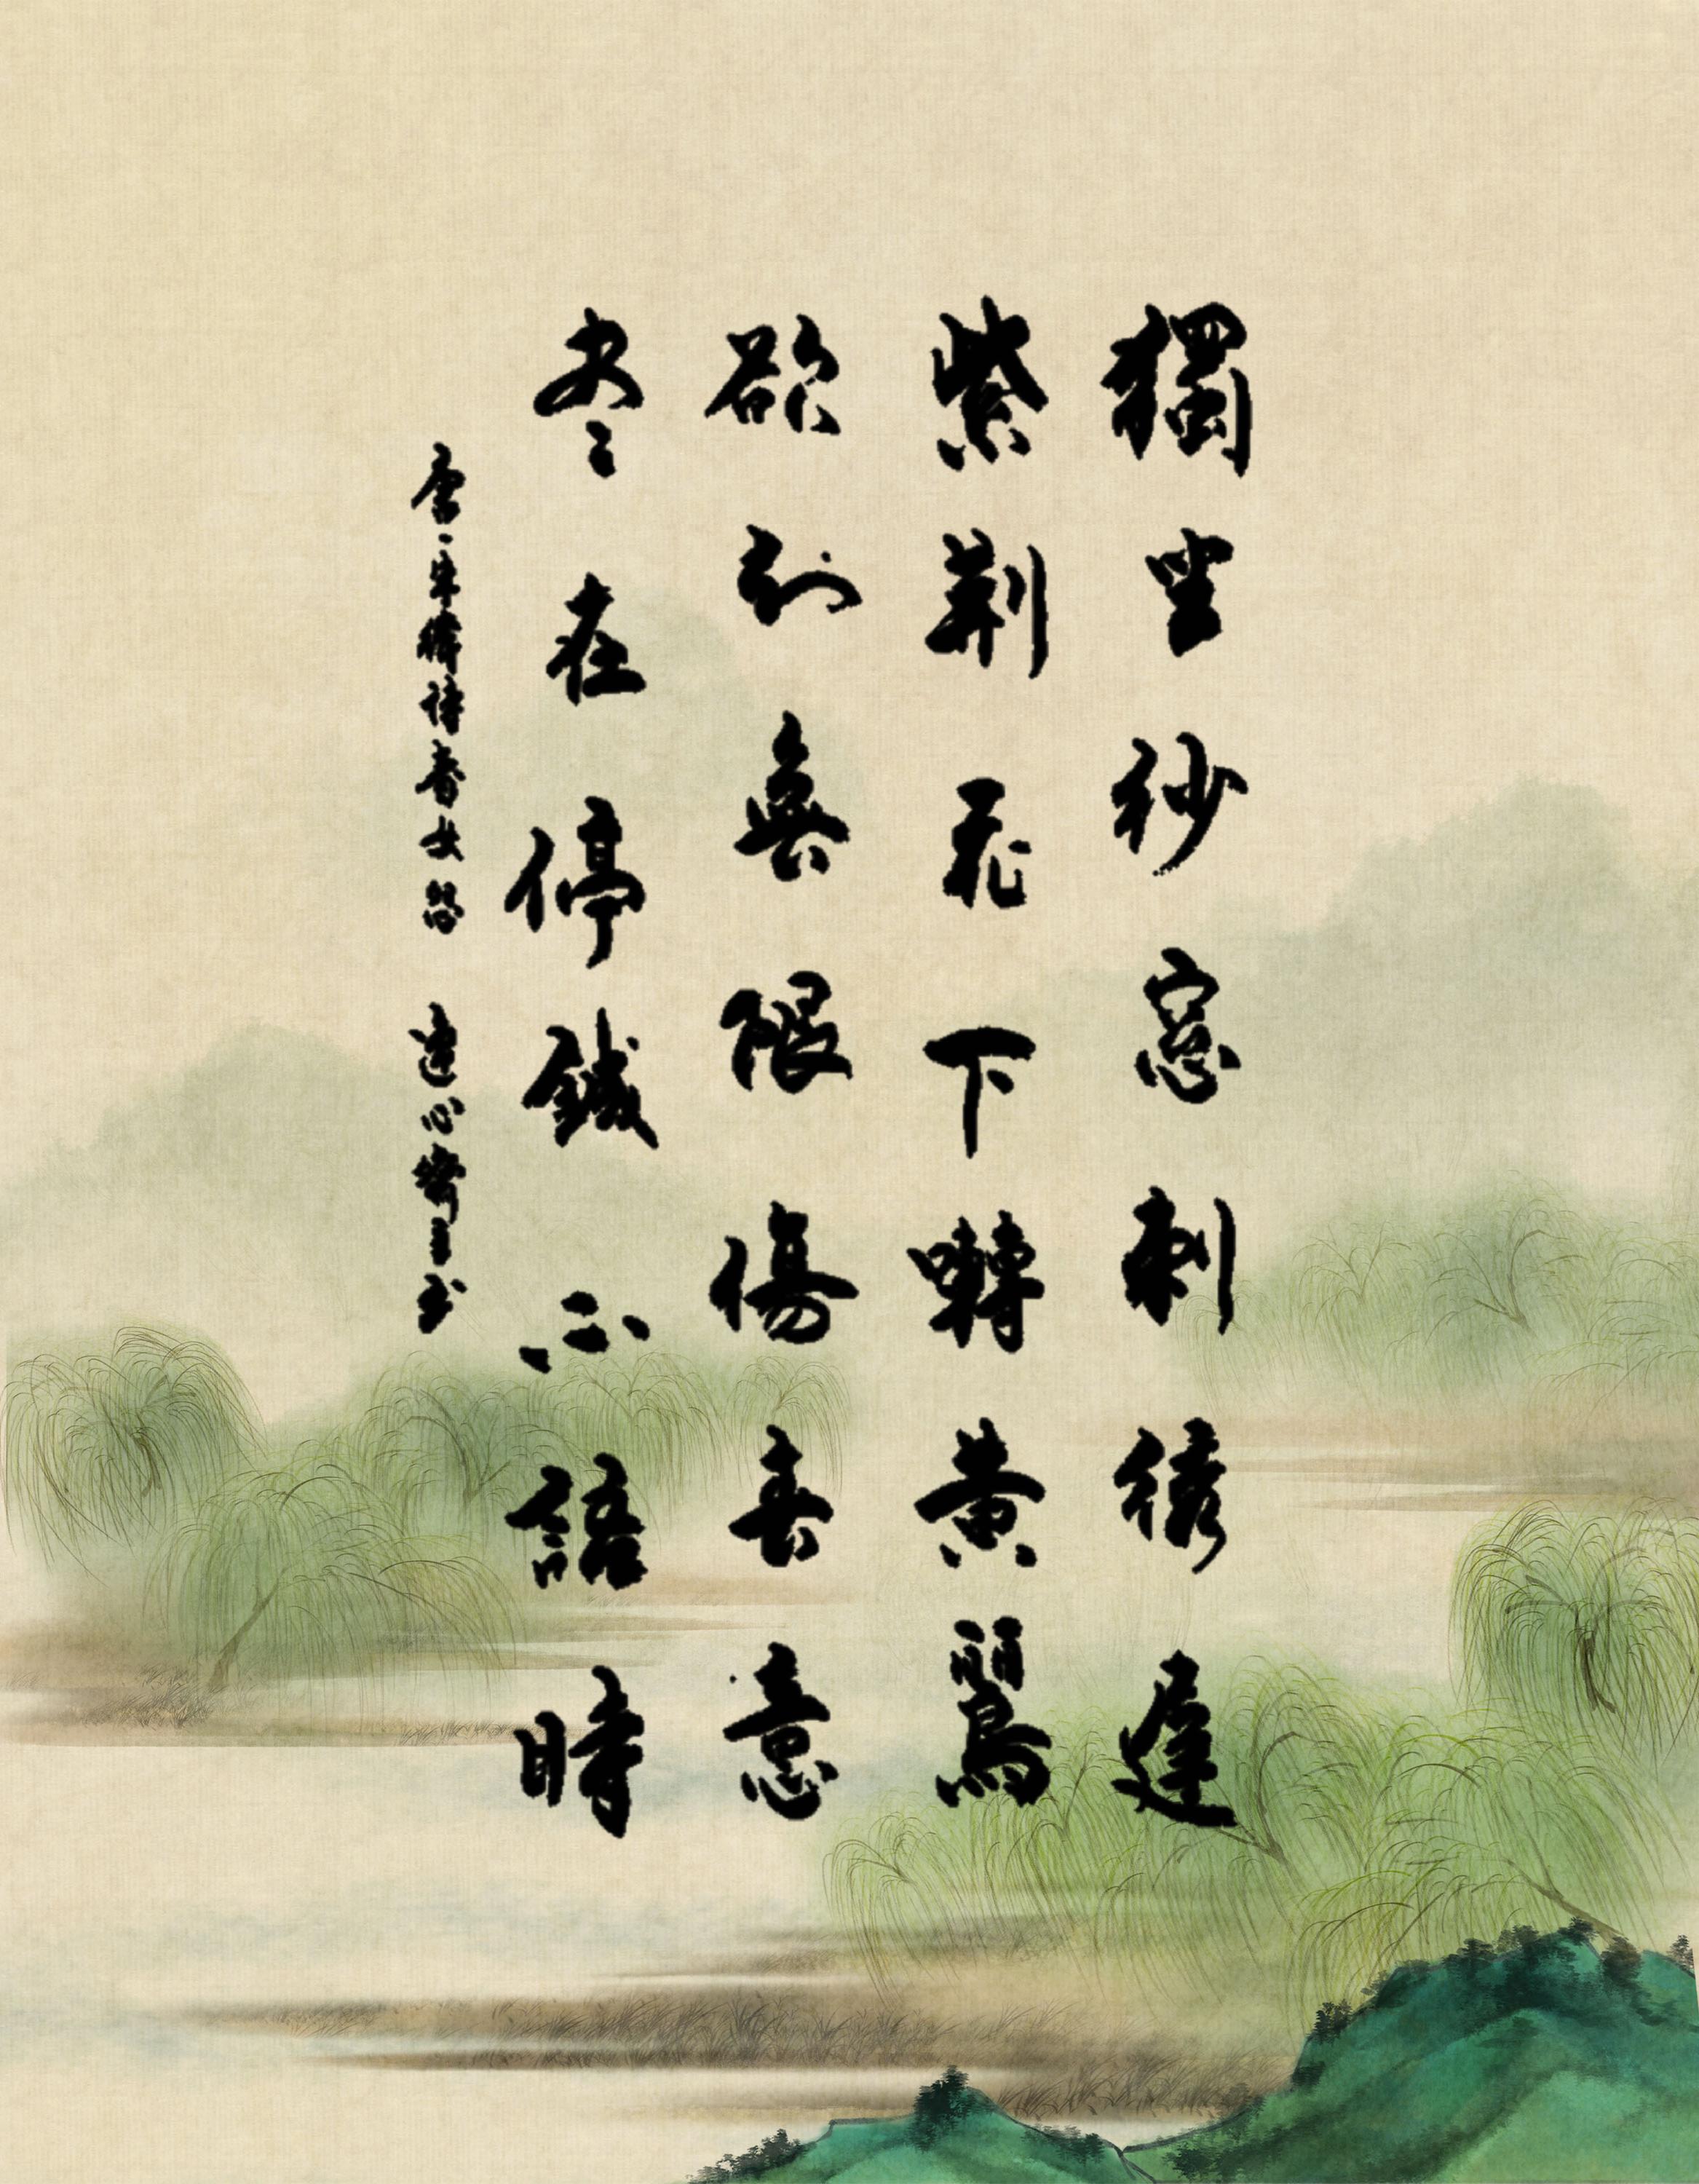 獨坐紗窗刺繡遲
紫荆花下囀黃鸝
欲知無限傷春意
尽在停鍼不語時
唐、朱絳詩春女怨 達心齋主书